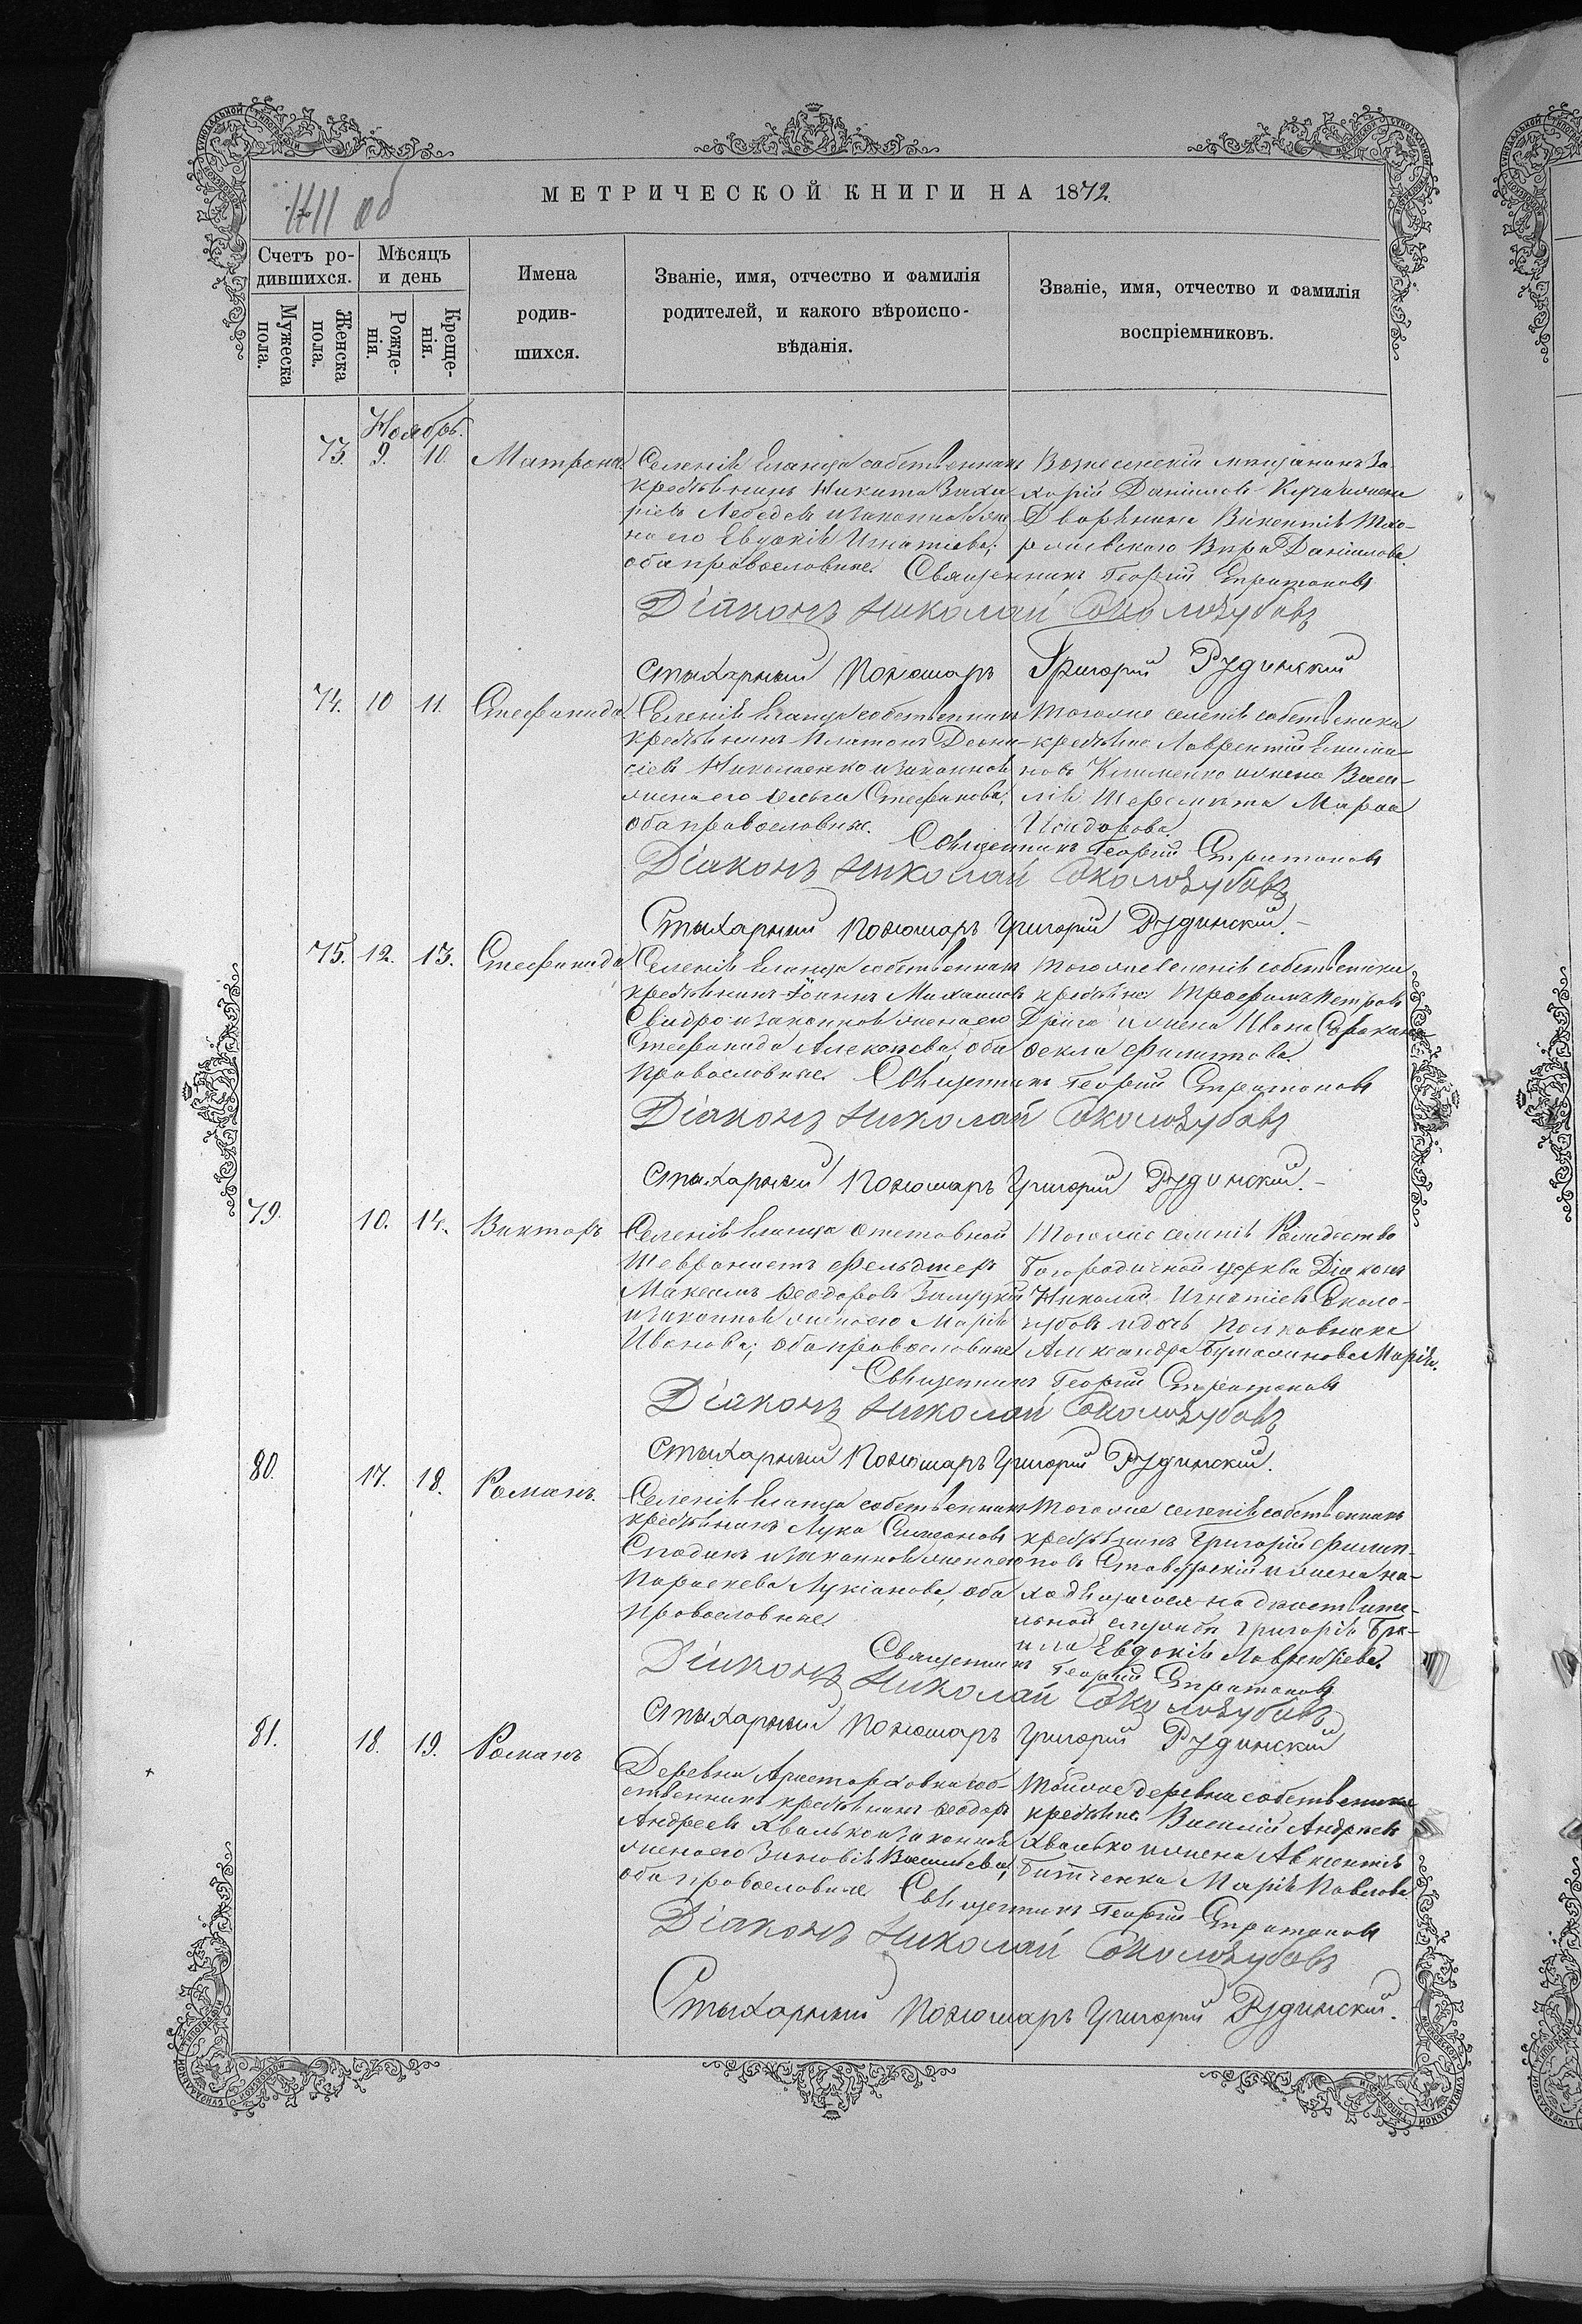 МЕТРИЧЕСКОЙ КНИГИ НА 1872.
об
Счетъ ро-
дившихся.
Мужеска
пола.
Женска
пола.
Мѣсяцъ
и день
Рожде-
нія.
Креще-
нія.
Имена
родив-
шихся.
Званіе, имя, отчество и фамилія
родителей, и какого вѣроиспо-
вѣданія.
Званіе, имя, отчество и фамилія
воспріемниковъ.
Ноябрь.
73. 9. 10. Матрона.
Селенія Еланца собственникъ
крестьянинъ Никита Заха-
ріевъ Лебедевъ и законная же-
на его Евдокія Игнатіева;
оба православные.
Вознесенскій мещанинъ За-
харій Даніиловъ и жена
Дворянина Викентія
Вѣра Даніилова.
Священникъ Георгій Стратоновъ
Діаконъ Николай Соколозубовъ
Стихарный Пономарь Григорій Рудинскій
74. 10 11. Стефанида.
Селенія Еланца собственникъ
крестьянинъ Платонъ Діони-
сіевъ Николаенко и законная
жена его Ольга Стефанова,
оба православные.
Того же селенія собственники
крестьяне Лаврентій
новъ Клименко и жена Васи-
лія Шеремета Марѳа
Исидорова.
Священникъ Георгій Стратоновъ
Діаконъ Николай Соколозубовъ
Стихарный Пономарь Григорій Рудинскій.
75. 12. 13. Стефанида
Селенія Еланца собственникъ
крестьянинъ Іоаннъ Михаиловъ
и законная жена его
Стефанида Алексѣева, оба
православные.
Того же селенія собственники
крестьяне Трофимъ Петровъ
Дрига и жена Ивана
Ѳекла Филиппова.
Священникъ Георгій Стратоновъ
Діаконъ Николай Соколозубовъ
Стихарный Пономарь Григорій Рудинскій.
79. 10. 14. Викторъ
Селенія Еланца отставной
фельдшеръ
Максимъ Ѳеодоровъ
и законная жена его Марія
Иванова; оба православные
Того же селенія Рождество
Богородичной церкви Діаконъ
Николай Игнатіевъ Соколо-
зубовъ и дочь Полковника
Александра Марія.
Священникъ Георгій Стратоновъ
Діаконъ Николай Соколозубовъ
Стихарный Пономарь Григорій Рудинскій.
80. 17. 18. Романъ.
Селенія Еланца собственникъ
крестьянинъ Лука Симеоновъ
и законная жена его
Параскева Лукіанова, оба
православные.
Того же селенія собственникъ
крестьянинъ Григорій Филип-
повъ и жена на-
ходящагося на дѣйствите-
льной службѣ Григорія
Евдокія Лаврентіева.
Священникъ Георгій Стратоновъ
Діаконъ Николай Соколозубовъ
Стихарный Пономарь Григорій Рудинскій
81. 18. 19. Романъ
Деревни Аристарховки соб-
ственникъ крестьянинъ Ѳеодоръ
Андреевъ Хвалько и законная
жена его Зиновія Васильева,
оба православные
Той же деревни собственники
крестьяне Василій Андреевъ
Хвалько и жена Авксентія
Марія Павлова
Священникъ Георгій Стратоновъ
Діаконъ Николай Соколозубовъ
Стихарный Пономарь Григорій Рудинскій.